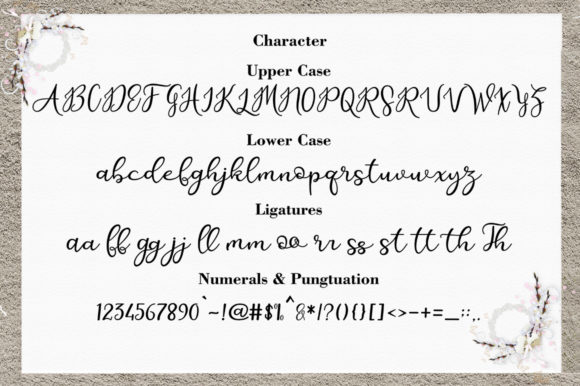 Character
Upper Case
ABCDEFGHIJKLMNOPQRSTUVWXYZ
Lower Case
abcdefghijklmnopqrstuvwxyz
Ligatures
aa ff gg jj ll mm oo rr ss st tt th Th
Numerals & Pungtuation
1234567890`~!@#$%^&*/?(){}[]<>-+=_::,.